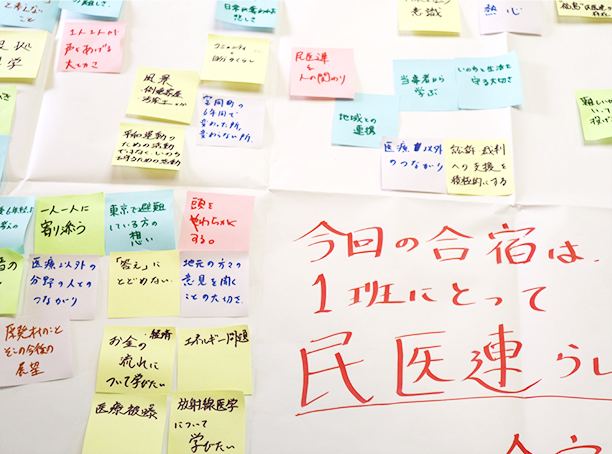 と考えない
こと
難しさ
意識
熱心
1人1人が
声をあげる
大切さ
コミュニティ
民医連
と
人の関わり
当事者から
学ぶ
いのちと生活を
守る大切さ
富岡町の
6年間で
変わった所,
変わらない所,
地域との
連携
平和運動の
ための活動
ではなく、いのち
を守るための活動
医療以外
のつながり
訴訟・裁判
への支援を
積極的にする
一人一人に
寄り添う
東京で避難
している方の
想い
頭を
やわらかく
する。
医療以外の
分野の人との
つながり
「答え」に
とどめない
地元の方々の
意見を聞く
ことの大切さ.
原発事故のこと
その今後の
展望
お金の
経済
流れに
ついて学びたい
エネルギー問題
医療被曝
放射線医学
について
学びたい
今回の合宿は、
1班にとって
民医連らし